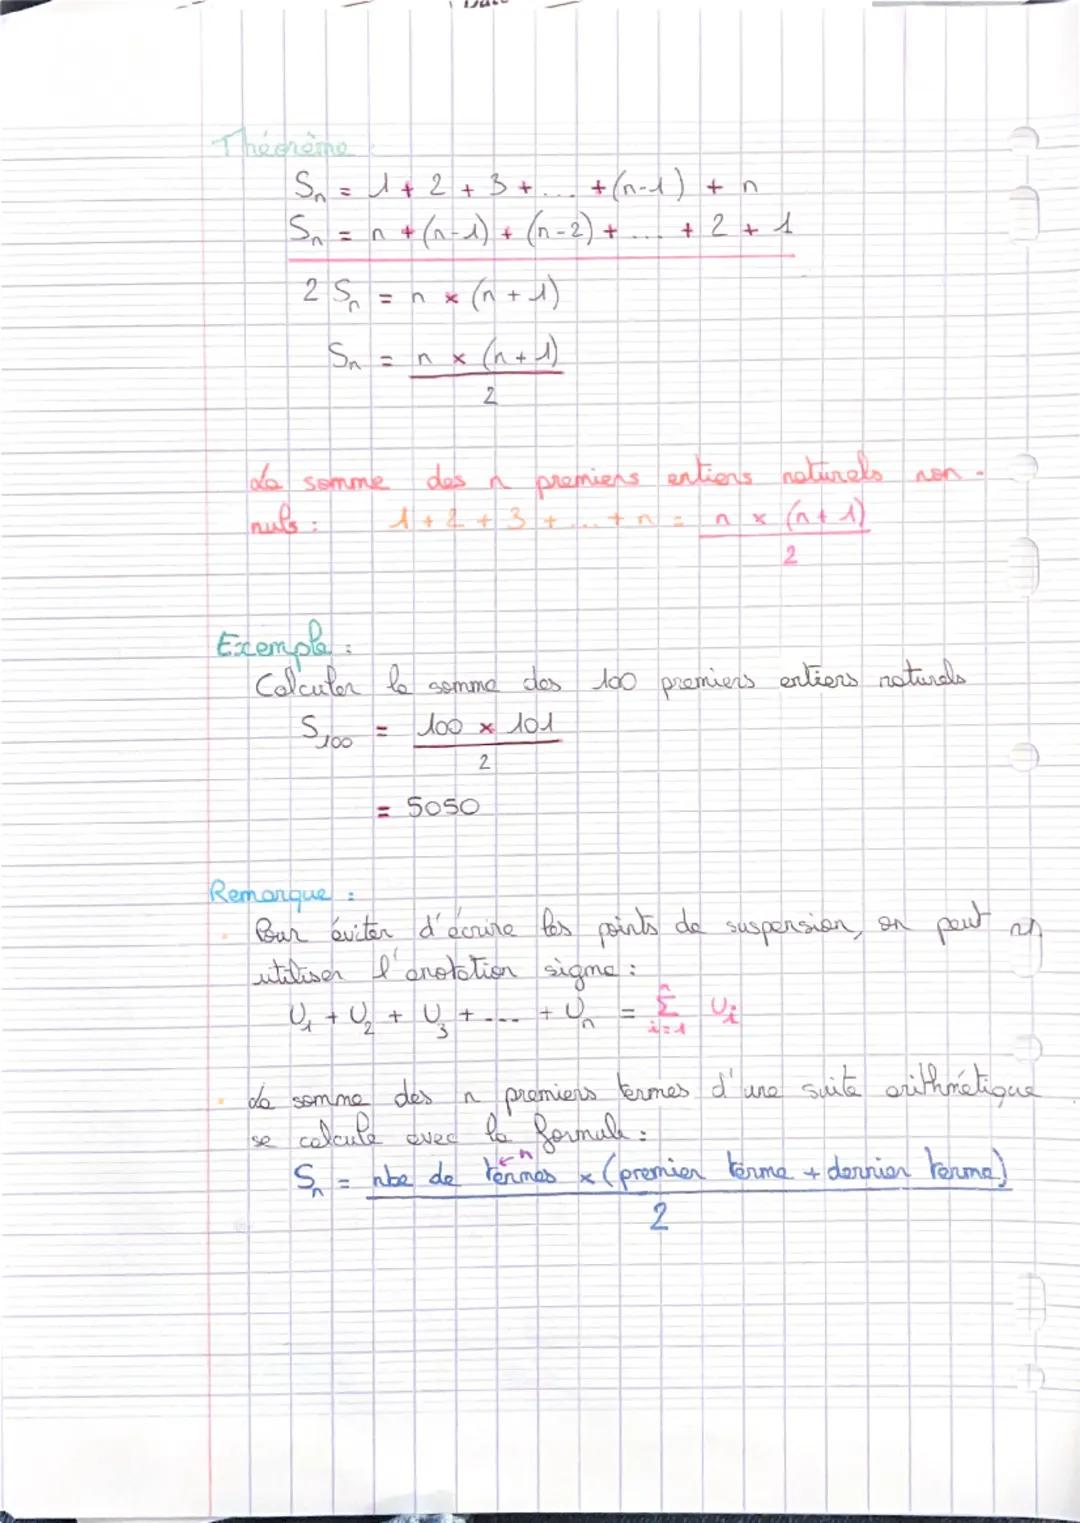 Théorème
Sn = 1 + 2 + 3 + ... + (n-1) + n
Sn = n + (n-1) + (n-2) + ... + 2 + 1
2 Sn = n × (n + 1)
Sn = n × (n + 1)
2
La somme des n premiers entiers naturels non-
nuls : 1 + 2 + 3 + ... + n = n × (n + 1)
2
Exemple :
Calculer la somme des 100 premiers entiers naturels
S100 = 100 × 101
2
= 5050
Remarque :
Pour éviter d'écrire les points de suspension, on peut
utiliser l'anotation sigma :
U1 + U2 + U3 + ... + Un = n Σ i=1 Ui
La somme des n premiers termes d'une suite arithmétique
se calcule avec la formule :
← n
Sn = nbe de termes × (premier terme + dernier terme)
2